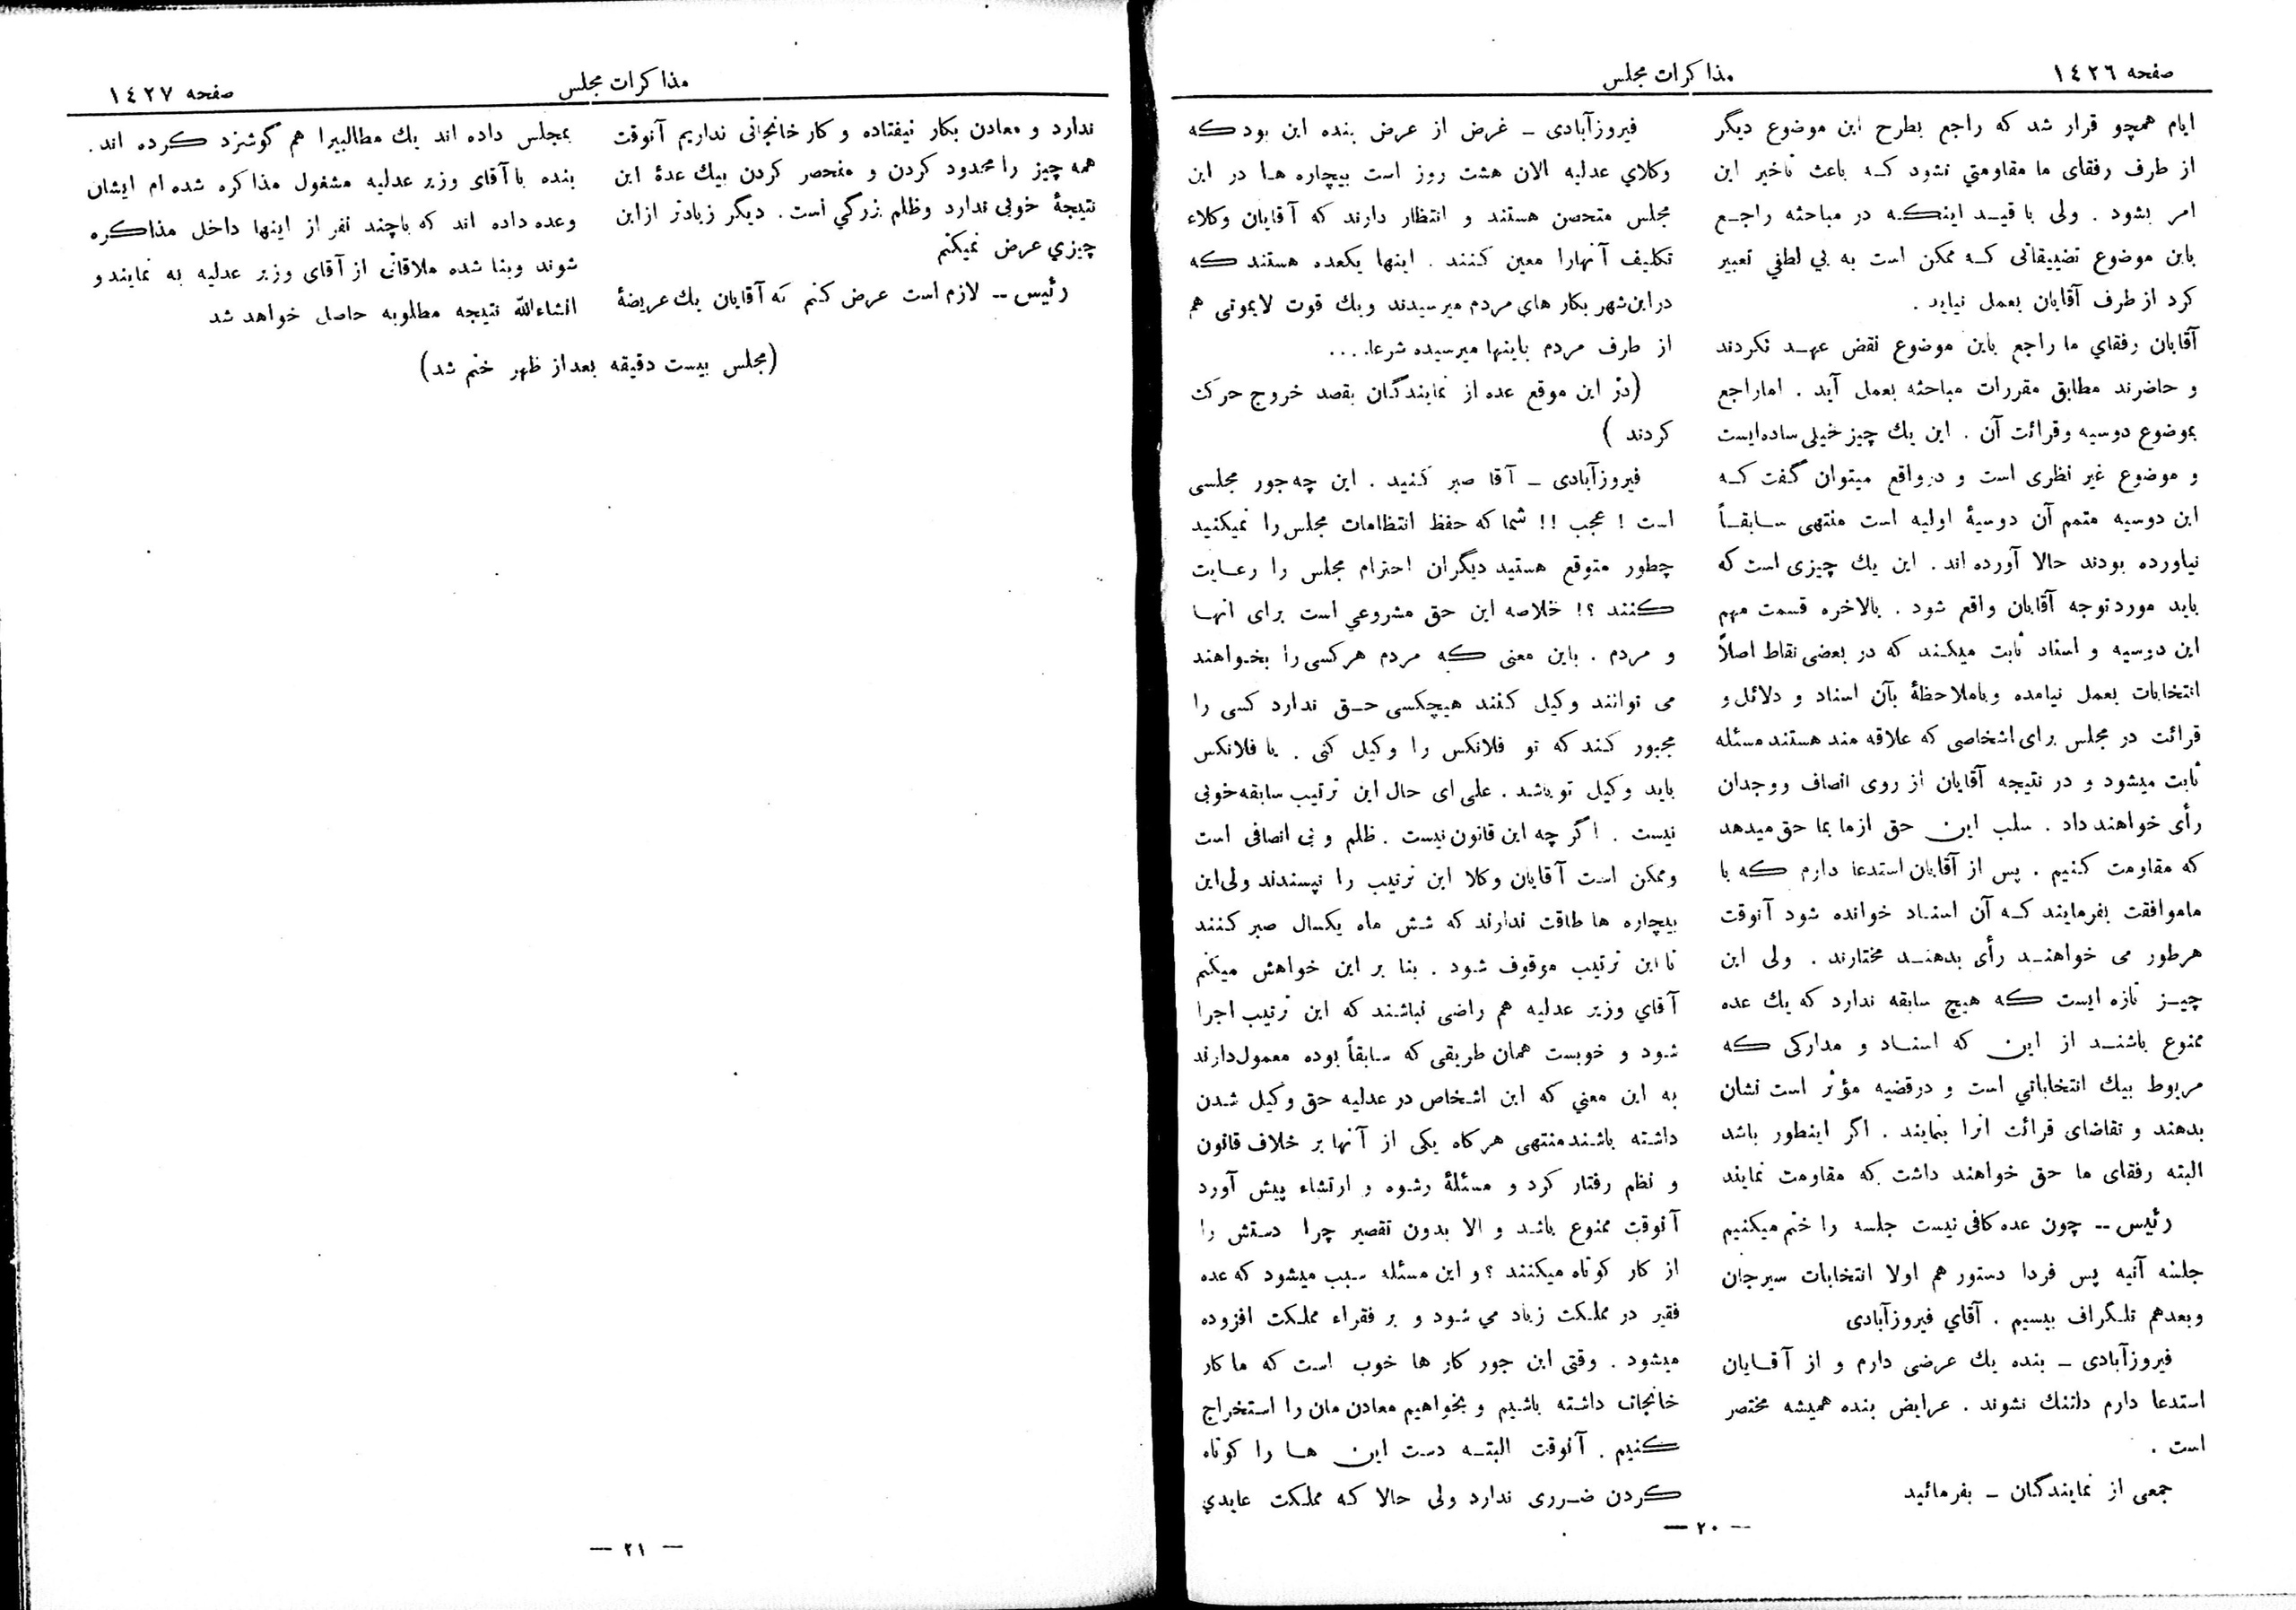 صفحه ١٤٢٦
مذاكرات مجلس
ايام همچو قرار شد كه راجع بطرح اين موضوع ديگر
از طرف رفقاى ما مقاومتي نشود كه باعث تاخير اين
امر بشود . ولى با قيد اينكه در مباحثه راجع
باين موضوع تضييقاتى كه ممكن است به بي لطفي تعبير
كرد از طرف آقايان بعمل نيايد .
آقايان رفقاي ما راجع باين موضوع نقض عهد نكردند
و حاضرند مطابق مقررات مباحثه بعمل آيد . اما راجع
بموضوع دوسيه وقرائت آن . اين يك چيز خيلى ساده ايست
و موضوع غير نظرى است و درواقع ميتوان گفت كه
اين دوسيه متمم آن دوسيۀ اوليه است منتهى سابقاً
نياورده بودند حالا آورده اند . اين يك چيزى است كه
بايد مورد توجه آقايان واقع شود . بالاخره قسمت مهم
اين دوسيه و اسناد ثابت ميكند كه در بعضى نقاط اصلاً
انتخابات بعمل نيامده وباملاحظۀ بآن اسناد و دلائل و
قرائت در مجلس براى اشخاصى كه علاقه مند هستند مسئله
ثابت ميشود و در نتيجه آقايان از روى انصاف ووجدان
رأى خواهند داد . سلب اين حق ازما بما حق ميدهد
كه مقاومت كنيم . پس از آقايان استدعا دارم كه با
ماموافقت بفرمايند كه آن اسناد خوانده شود آنوقت
هرطور مى خواهند رأى بدهند مختارند . ولى اين
چيز تازه ايست كه هيچ سابقه ندارد كه يك عده
ممنوع باشند از اين كه اسناد و مداركى كه
مربوط بيك انتخاباتي است و درقضيه مؤثر است نشان
بدهند و تقاضاى قرائت انرا بنمايند . اگر اينطور باشد
البته رفقاى ما حق خواهند داشت كه مقاومت نمايند
رئيس -- چون عده كافى نيست جلسه را ختم ميكنيم
جلسه آتيه پس فردا دستور هم اولا انتخابات سيرجان
وبعدهم تلگراف بيسيم . آقاي فيروزآبادى
فيروزآبادى – بنده يك عرضى دارم و از آقايان
استدعا دارم دلتنك نشوند . عرايض بنده هميشه مختصر
است .
جمعى از نمايندگان – بفرمائيد
فيروزآبادى – غرض از عرض بنده اين بود كه
وكلاي عدليه الان هشت روز است بيچاره ها در اين
مجلس متحصن هستند و انتظار دارند كه آقايان وكلاء
تكليف آنهارا معين كنند . اينها يكعده هستند كه
دراين شهر بكار هاي مردم ميرسيدند ويك قوت لايموتى هم
از طرف مردم باينها ميرسيده شرعا....
(در اين موقع عده از نمايندگان بقصد خروج حركت
كردند )
فيروزآبادى – آقا صبر كنيد . اين چه جور مجلسى
است ! عجب !! شما كه حفظ انتظامات مجلس را نميكنيد
چطور متوقع هستيد ديگران احترام مجلس را رعايت
كنند ؟! خلاصه اين حق مشروعي است براى انها
و مردم . باين معنى كه مردم هركسى را بخواهند
مى توانند وكيل كنند هيچكسى حق ندارد كسى را
مجبور كند كه تو فلانكس را وكيل كنى . يا فلانكس
بايد وكيل تو باشد . على اى حال اين ترتيب سابقه خوبى
نيست . اگر چه اين قانون نيست . ظلم و بى انصافى است
وممكن است آقايان وكلا اين ترتيب را نپسندند ولى اين
بيچاره ها طاقت ندارند كه شش ماه يكسال صبر كنند
تا اين ترتيب موقوف شود . بنا بر اين خواهش ميكنم
آقاي وزير عدليه هم راضى نباشند كه اين ترتيب اجرا
شود و خوبست همان طريقى كه سابقاً بوده معمول دارند
به اين معني كه اين اشخاص در عدليه حق وكيل شدن
داشته باشند منتهى هركاه يكى از آنها بر خلاف قانون
و نظم رفتار كرد و مسئلۀ رشوه و ارتشاء پيش آورد
آنوقت ممنوع باشد و الا بدون تقصير چرا دستش را
از كار كوتاه ميكنند ؟ و اين مسئله سبب ميشود كه عده
فقير در مملكت زياد مي شود و بر فقراء مملكت افزوده
ميشود . وقتى اين جور كار ها خوب است كه ما كار
خانجات داشته باشيم و بخواهيم معادن مان را استخراج
كنيم . آنوقت البته دست اين ها را كوتاه
كردن ضررى ندارد ولى حالا كه مملكت عايدي
— ٢٠ —
مذاكرات مجلس
صفحه ١٤٢٧
ندارد و معادن بكار نيفتاده و كار خانجاتى نداريم آنوقت
همه چيز را محدود كردن و منحصر كردن بيك عدۀ اين
نتيجۀ خوبى ندارد وظلم بزرگي است . ديگر زيادتر ازاين
چيزي عرض نميكنم
رئيس -- لازم است عرض كنم كه آقايان يك عريضۀ
بمجلس داده اند يك مطالبيرا هم گوشزد كرده اند .
بنده با آقاى وزير عدليه مشغول مذاكره شده ام ايشان
وعده داده اند كه باچند نفر از اينها داخل مذاكره
شوند وبنا شده ملاقاتى از آقاى وزير عدليه به نمايند و
انشاءالله نتيجه مطلوبه حاصل خواهد شد
(مجلس بيست دقيقه بعد از ظهر ختم شد)
— ٢١ —